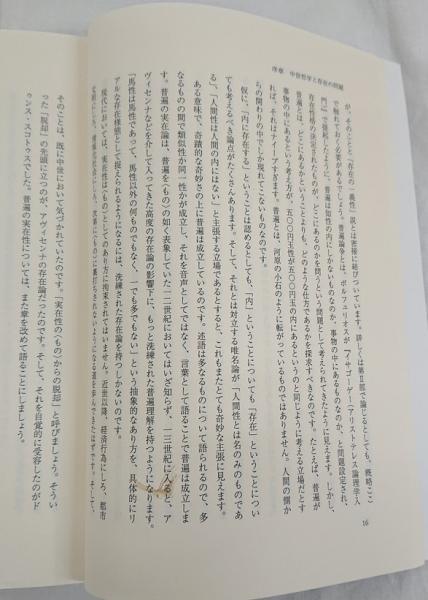 序章　中世哲学と存在の問題
16
が、そのことと「存在の一義性」説とは密接に結びついています。詳しくは第Ⅱ部で論じるとしても、概略ここ
で触れておく必要があるでしょう。普遍論争とは、ポルフュリオスが『イサゴーゲー（アリストテレス論理学入
門）』で提起したように、普遍は知性の内にしかないものなのか、事物の中にあるものなのか、と問題設定され、
存在性格の決定されたものが、どこにあるのかを問うという問題として考えられてきたように見えます。しかし、
普遍とは、どこにあるかということよりも、どのような仕方であるかを探求すべきなのです。たとえば、普遍が
事物の中にあるという考え方が、五〇〇円玉性が五〇〇円玉の内にあるというのと同じように考える立場だとす
れば、それはナイーブすぎます。普遍とは、河原の小石のように転がっているものではありません。人間の慣か
らの関わりの中でしか現れてこないものなのです。
仮に、「内に存在する」ということは認めるとしても、「内」ということについても「存在」ということについ
ても考えるべき論点がたくさんあります。そして、それとは対立する唯名論が「人間性とは名のみのものであ
る」、「人間性は人間の内にはない」と主張する立場であるとすると、これもまたとても奇妙な主張に見えます。
ある意味で、奇蹟的な奇妙さの上に普遍は成立しているのです。述語は多なるものについて語られるので、多
なるものの間で類似性か同一性かが成立し、それを音声としてではなく、言葉として語ることで普遍は成立しま
す。普遍の実在論は、普遍を〈もの〉の如く表象していた一二世紀においてはいざ知らず、一三世紀に入ると、ア
ヴィセンナなどを介して入ってきた高度の存在論の影響下に、もっと洗練された普遍理解を持つようになります。
「馬性は馬性であって、馬性以外の何ものでもなく、一でも多でもない」という抽象的なあり方を、具体的にリ
アルな存在様態として捉えられるようになるには、洗練された存在論を持つしかないのです。
現代においては、実在性は〈もの〉としてのあり方に拘束されてはいません。近世以降、経済行為にしろ、都市
そのことは、既に中世において気づかれていたのです。「実在性の〈もの〉からの脱却」と呼びましょう。そうい
った「脱却」の先頭に立つのが、アヴィセンナの存在論だったのです。そして、それを自覚的に受容したのがド
ゥンス・スコトゥスでした。普遍の実在性については、また章を改めて語ることにしましょう。